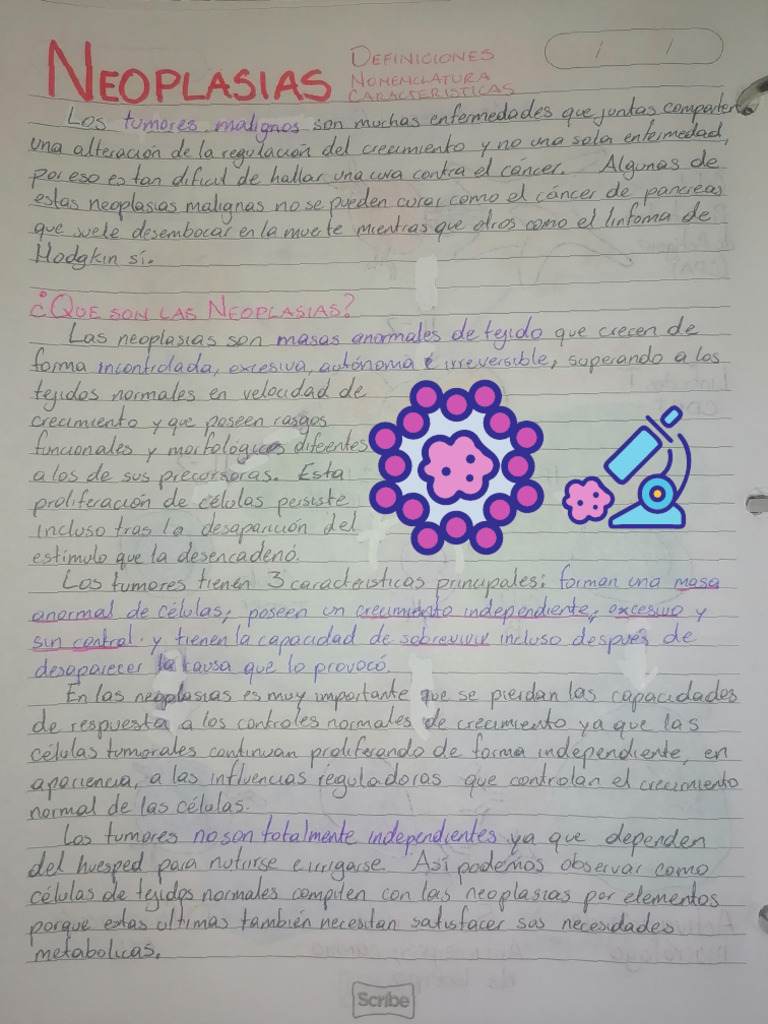 NEOPLASIAS
DEFINICIONES
NOMENCLATURA
CARACTERISTICAS
/ /
Los tumores malignos son muchas enfermedades que juntas comparten
una alteración de la regulación del crecimiento y no una sola enfermedad,
por eso es tan dificil de hallar una cura contra el cáncer. Algunas de
estas neoplasias malignas no se pueden curar como el cáncer de pancreas
que suele desembocar en la muerte mientras que otros como el linfoma de
Hodgkin sí.
¿QUE SON LAS NEOPLASIAS?
Las neoplasias son masas anormales de tejido que crecen de
forma incontrolada, excesiva, autónoma e irreversible, superando a los
tejidos normales en velocidad de
crecimiento y que poseen rasgos
funcionales y morfológicos difeentes
a los de sus precursoras. Esta
proliferación de células persiste
incluso tras la desaparición del
estimulo que la desencadenó.
Los tumores tienen 3 caracteristicas principales: forman una masa
anormal de células, poseen un crecimiento independiente, excesivo y
sin control y tienen la capacidad de sobrevivir incluso después de
desaparecer la causa que lo provocó.
En las neoplasias es muy importante que se pierdan las capacidades
de respuesta a los controles normales de crecimiento ya que las
células tumorales continuan proliferando de forma independiente, en
apariencia, a las influencias reguladoras que controlan el crecimiento
normal de las células.
Los tumores no son totalmente independientes ya que dependen
del huesped para nutrirse e irrigarse. Así podemos observar como
células de tejidos normales compiten con las neoplasias por elementos
porque estas ultimas también necesitan satisfacer sus necesidades
metabolicas.
Scribe